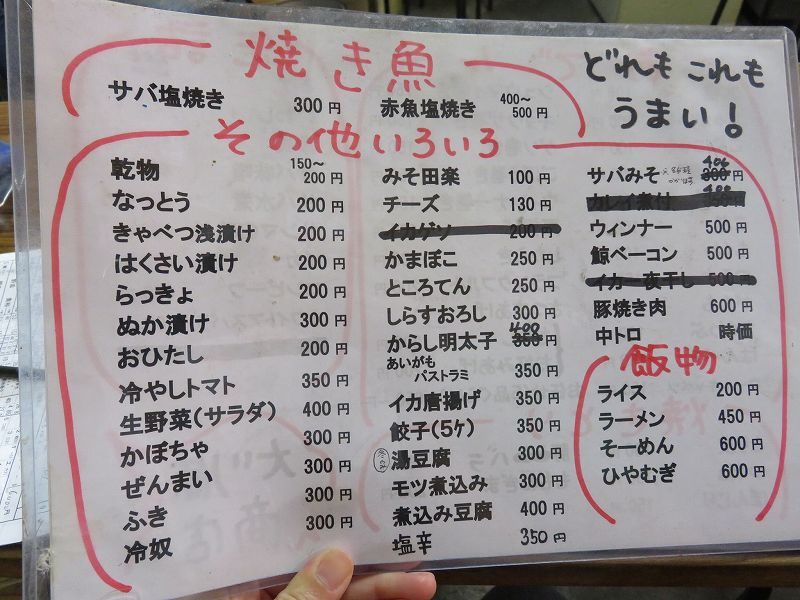 焼き魚
どれもこれも
うまい!
サバ塩焼き 300円
赤魚塩焼き 400～500円
その他いろいろ
乾物 150～200円
なっとう 200円
きゃべつ浅漬け 200円
はくさい漬け 200円
らっきょ 200円
ぬか漬け 300円
おひたし 200円
冷やしトマト 350円
生野菜(サラダ) 400円
かぼちゃ 300円
ぜんまい 300円
ふき 300円
冷奴 300円
みそ田楽 100円
チーズ 130円
イカゲソ 200円
かまぼこ 250円
ところてん 250円
しらすおろし 300円
からし明太子 400 350円
あいがも
パストラミ 350円
イカ唐揚げ 350円
餃子(5ケ) 350円
湯豆腐 300円
モツ煮込み 300円
煮込み豆腐 400円
塩辛 350円
サバみそ 400 300円
カレイ煮付 400 350円
ウィンナー 500円
鯨ベーコン 500円
イカ一夜干し 500円
豚焼き肉 600円
中トロ 時価
飯物
ライス 200円
ラーメン 450円
そーめん 600円
ひやむぎ 600円